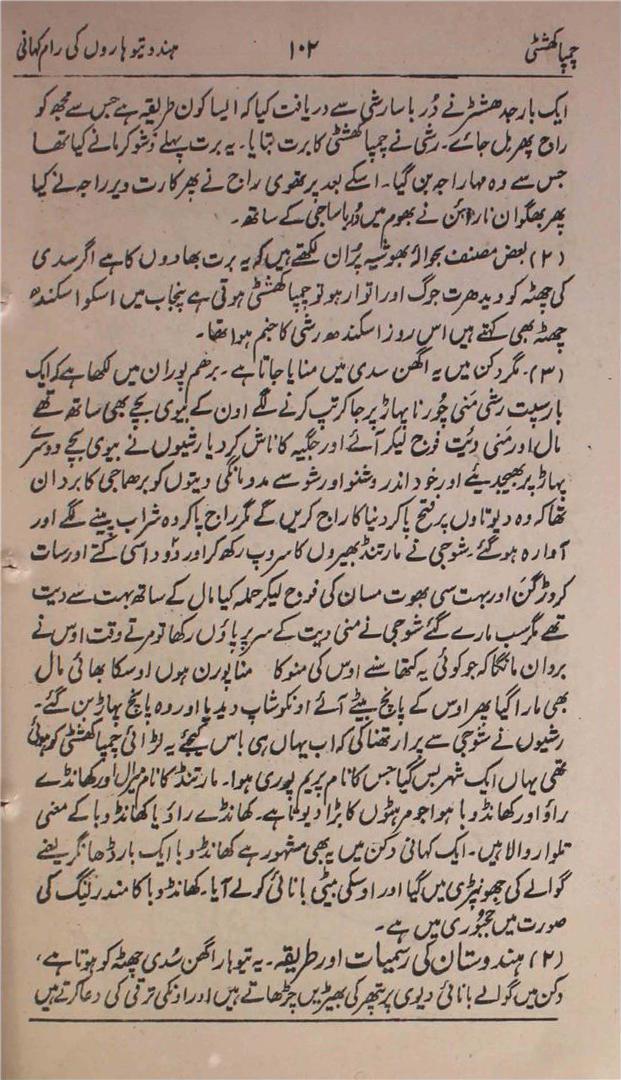 چمپا کھشٹی ۱۰۲ ہندو تیوہاروں کی رام کہانی
ایک بار جدھشٹر نے دُرباسا رشی سے دریافت کیا کہ ایسا کون طریقہ ہے جس سے مجھ کو
راج پھر مل جائے۔ رشی نے چمپا کھشٹی کا برت بتایا۔ یہ برت پہلے وشو کرما نے کیا تھا
جس سے وہ مہاراجہ بن گیا۔ اسکے بعد پرتھوی راج نے پھر کارت ویر راجہ نے کیا
پھر بھگوان نارائن نے بھوم میں دُرباسا جی کے ساتھ۔
(۲) بعض مصنف بحوالہ بھوشیہ پُران لکھتے ہیں کہ یہ برت بھادوں کا ہے اگر سدی
کی چھٹہ کو ویدھرت جوگ اور اتوار ہو تو چمپا کھشٹی ہوتی ہے پنجاب میں اسکو اسکندہ
چھٹہ بھی کہتے ہیں اس روز اسکندھ رشی کا جنم ہوا تھا۔
(۳)۔ مگر دکن میں یہ اگھن سدی میں منایا جاتا ہے۔ برھم پوران میں لکھا ہے کہ ایک
بار سپت رشی مَنی چُورنا پہاڑ پر جا کر تپ کرنے لگے اون کے بیوی بچے بھی ساتھ تھے
مال اور مَنی دیَت فوج لیکر آئے اور جگیہ کا ناش کر دیا رشیوں نے بیوی بچے دوسرے
پہاڑ پر بھیجدیئے اور خود اندر وشنو اور شو سے مدد مانگی دیتوں کو برھما جی کا بردان
تھا کہ وہ دیوتاوں پر فتح پا کر دنیا کا راج کریں گے مگر راج پا کر وہ شراب پینے لگے اور
آوارہ ہو گئے۔ شوجی نے مارتنڈ بھیروں کا سروپ رکھ کر اور دو داسی کتے اور سات
کروڑ گن اور بہت سی بھوت مسان کی فوج لیکر حملہ کیا مال کے ساتھ بہت سے دیت
تھے مگر سب مارے گئے شوجی نے منی دیت کے سر پر پاؤں رکھا تو مرتے وقت اوس نے
بردان مانگا کہ جو کوئی یہ کتھا سنے اوس کی منو کامنا پورن ہوں اوسکا بھائی مال
بھی مارا گیا پھر اوس کے پانچ بیٹے آئے اونکو شاپ دیدیا اور وہ پانچ پہاڑ بن گئے۔
رشیوں نے شوجی سے پرارتھنا کی کہ اب یہاں ہی باس کیجئے یہ لڑائی چمپا کھشٹی کو ہوئی
تھی یہاں ایک شہر بس گیا جس کا نام پریم پوری ہوا۔ مارتنڈ کا نام میرال اور کھانڈے
راؤ اور کھانڈوبا ہوا جو مرہٹوں کا بڑا دیوتا ہے۔ کھانڈے راؤ یا کھانڈوبا کے معنی
تلوار والا ہیں۔ ایک کہانی دکن میں یہ بھی مشہور ہے کھانڈوبا ایک بار ڈھانگر یعنے
گوالے کی جھونپڑی میں گیا اور اوسکی بیٹی بانائی کو لے آیا۔ کھانڈوبا کا مندر لِنگ کی
صورت میں ججُوری میں ہے۔
(۲) ہندوستان کی رسمیات اور طریقہ۔ یہ تیوہار اگھن سُدی چھٹہ کو ہوتا ہے،
دکن میں گوالے بانائی دیوی پر پتھر کی بھیڑیں چڑھاتے ہیں اور اونکی ترقی کی دعا کرتے ہیں